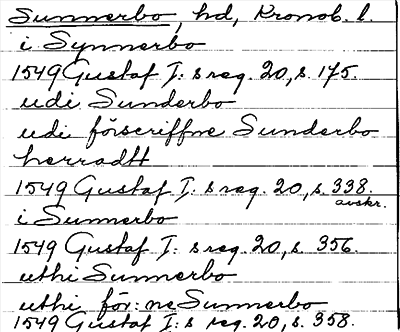 Sunnerbo, hd, Kronob. l.
i Synnerbo
1549 Gustaf I: s reg. 20, s. 175.
udi Sunderbo
udi förscriffne Sunderbo
herradtt
1549 Gustaf I: s reg. 20, s. 338.
avskr.
i Sunnerbo
1549 Gustaf I: s reg. 20, s. 356.
uthi Sunnerbo
uthi för: ne Sunnerbo
1549 Gustaf I: s reg. 20, s. 358.